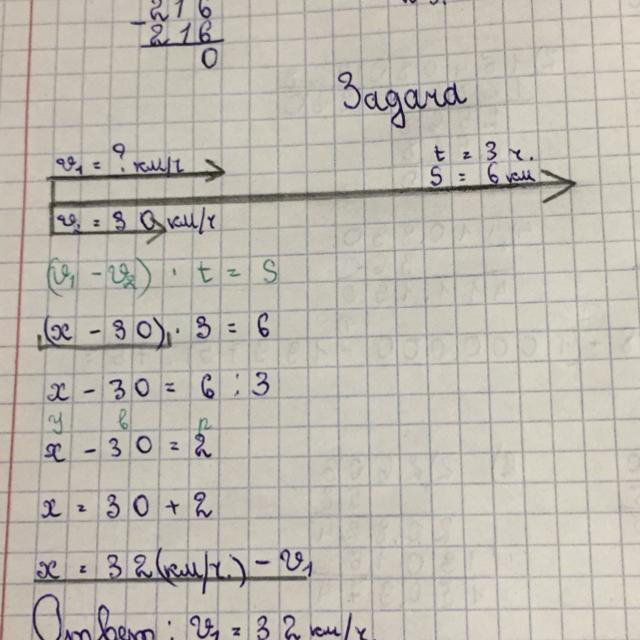 216
- 216
0
Задача
v₁ = ? км/ч
t = 3 ч.
S = 6 км
v₂ = 30 км/ч
(v₁ - v₂) · t = S
(x - 30) · 3 = 6
x - 30 = 6 : 3
у в р
x - 30 = 2
x = 30 + 2
x = 32 (км/ч.) - v₁
Ответ: v₁ = 32 км/ч.